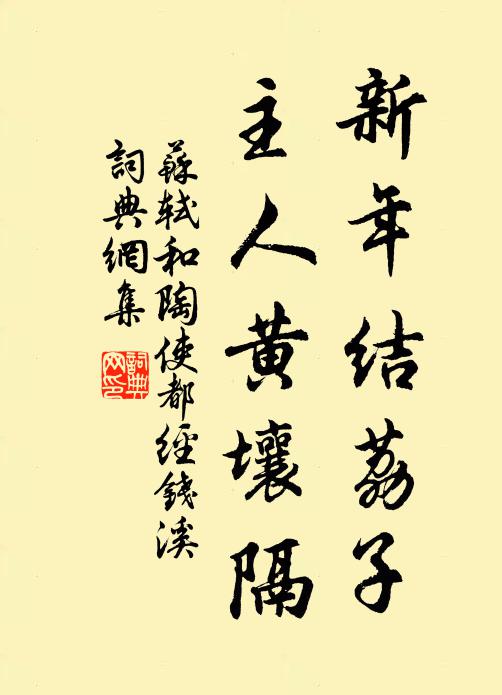 新年結荔子
主人黄壤隔
蘇軾和陶使都經錢溪
詞典網集
詞典网印